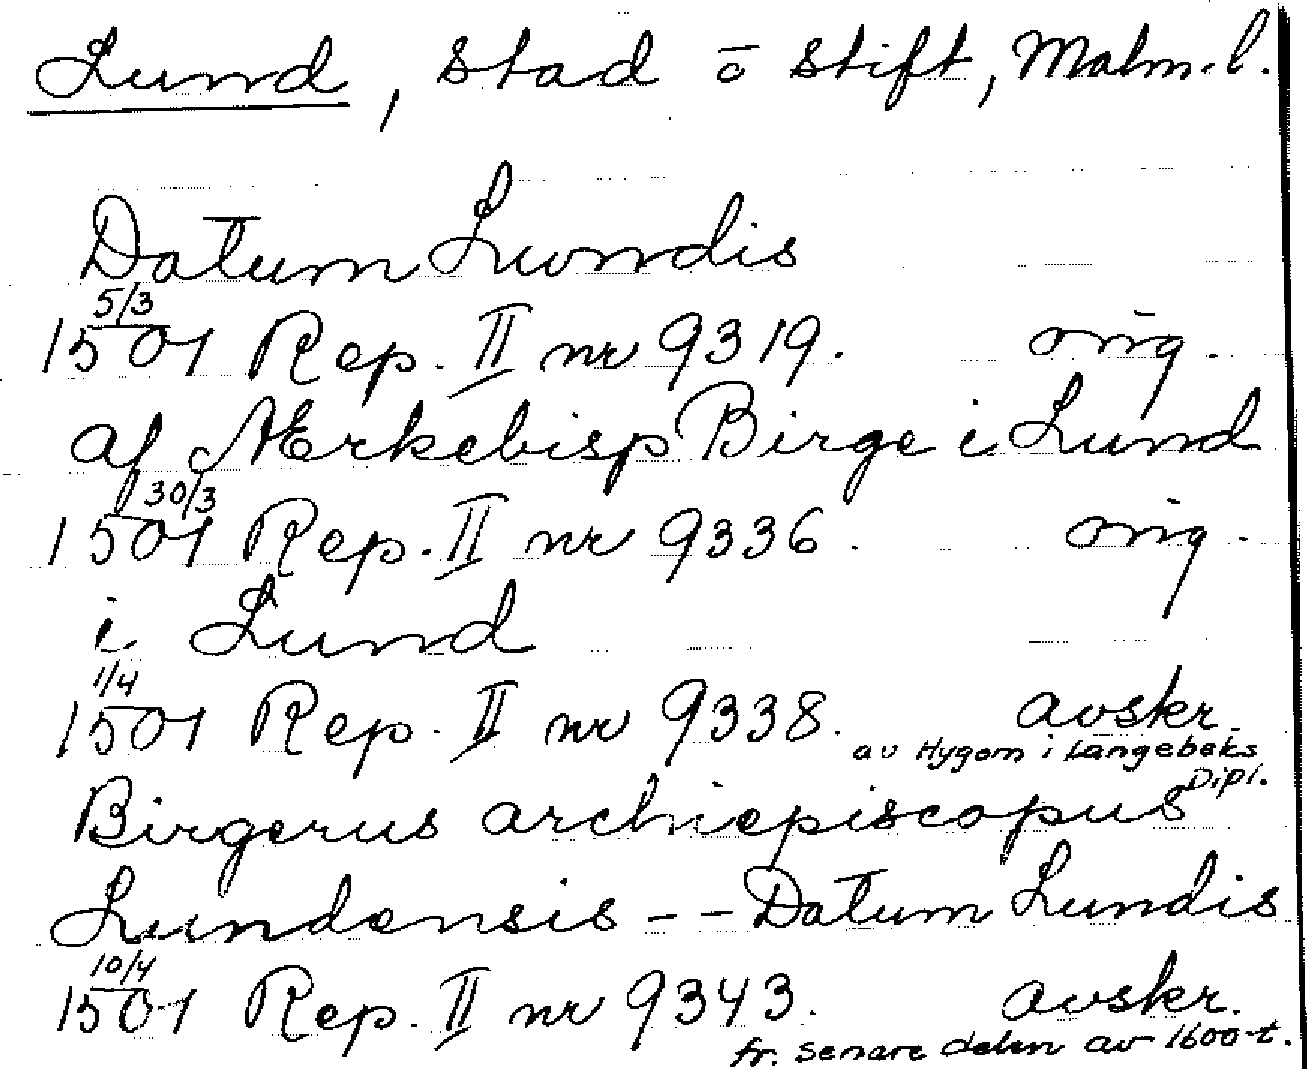 Lund, stad ō stift, Malm.l.
Datum Lwndis
5/3
1501 Rep. II nr 9319. orig.
af Ærkebisp Birge i Lund
30/3
1501 Rep. II nr 9336. orig.
i Lund
1/4
1501 Rep. II nr 9338. avskr.
av Hygom i Langebeks
Dipl.
Birgerus archiepiscopus
Lundensis - - Datum Lundis
10/4
1501 Rep. II nr 9343. avskr.
fr. senare delen av 1600-t.